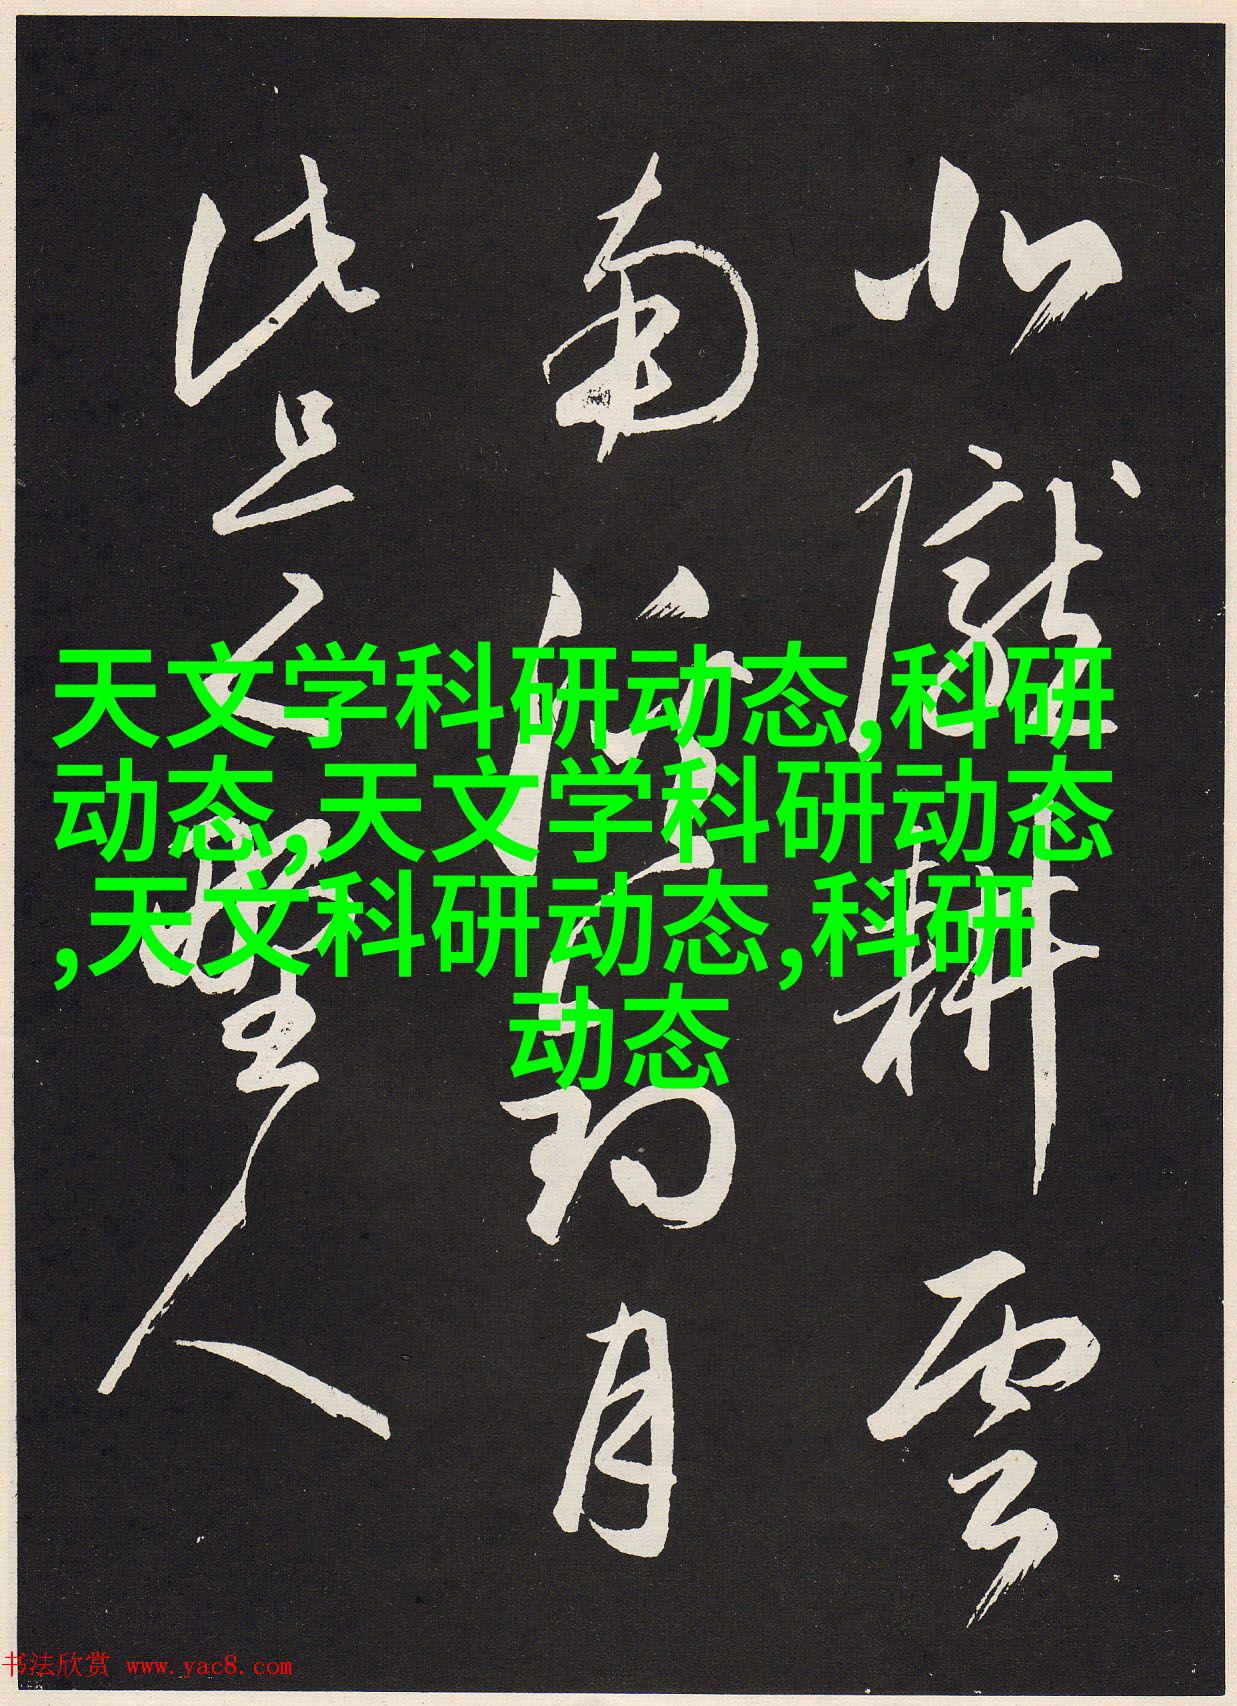 北隴耕雲
南溪釣月
此是野人
天文学科研动态,科研
动态, 天文学科研动态
,天文科研动态,科研
动态
书法欣赏 www.yac8.com